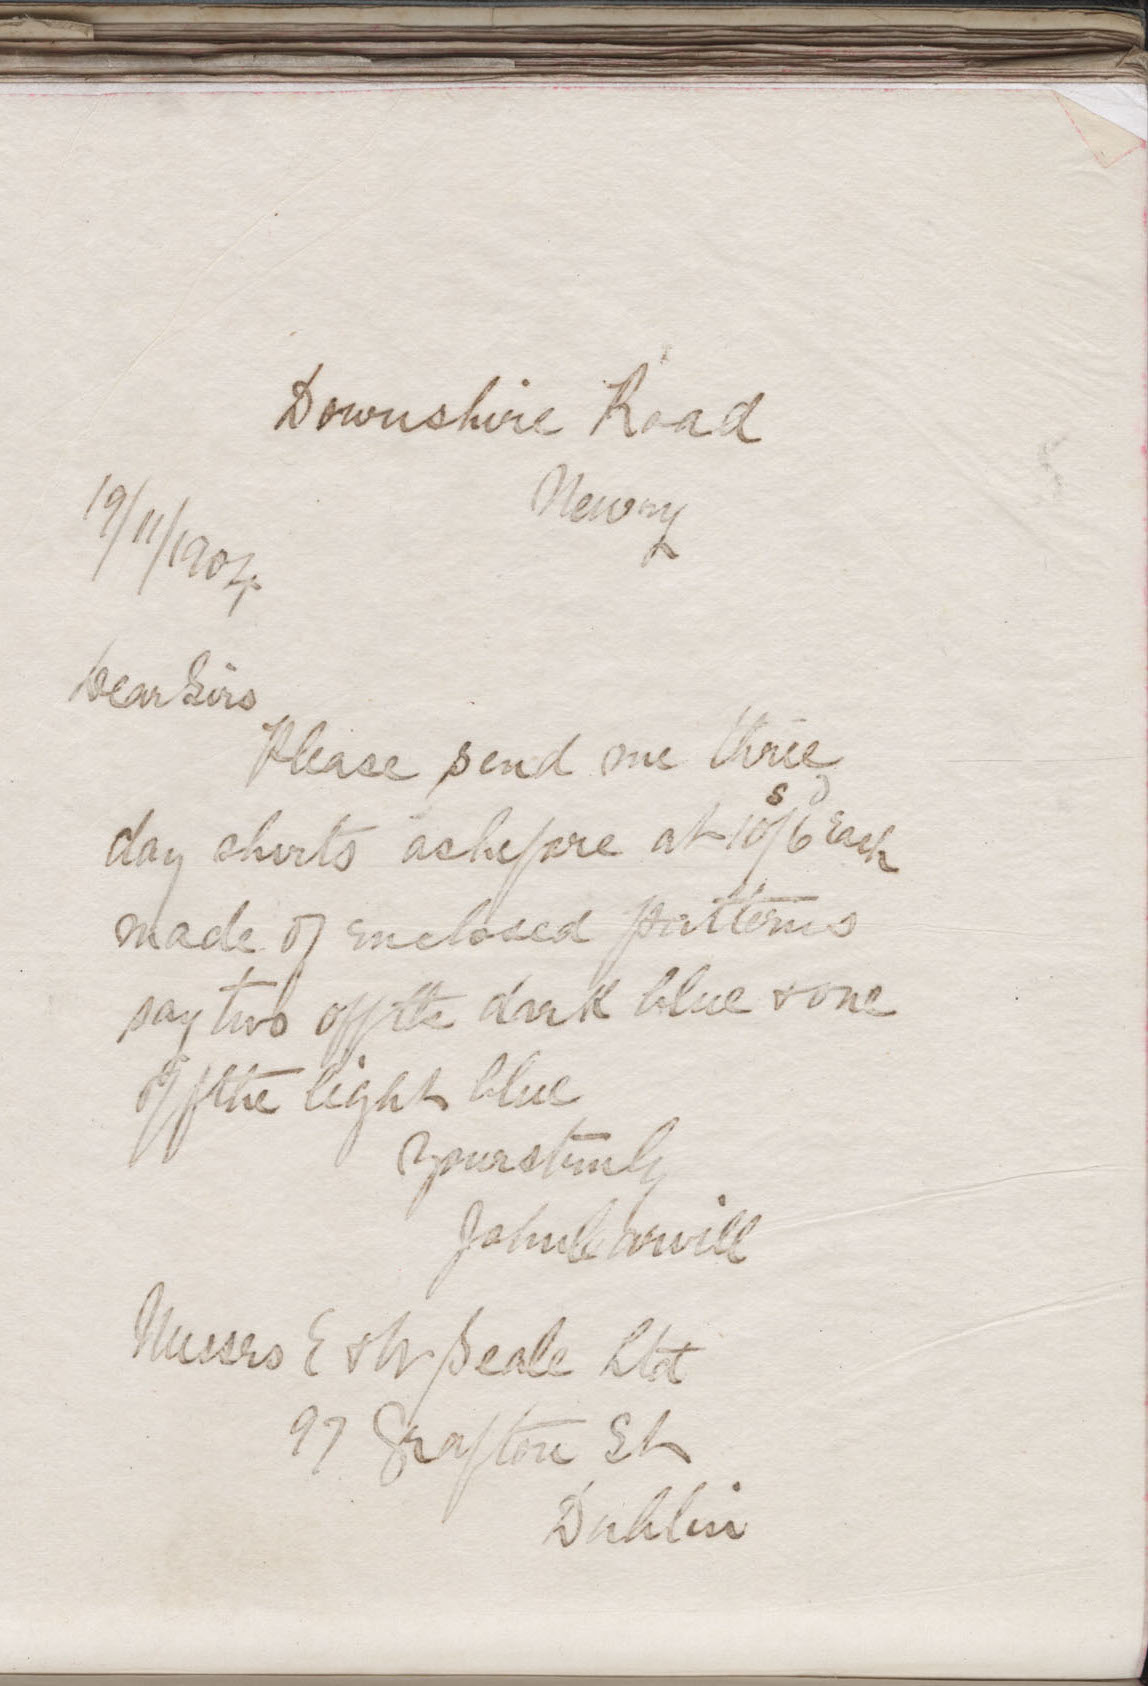 Downshire Road
Newry
19/11/1904
Dear Sirs
Please send me three
day shirts as before at 10s/6d each
made of enclosed patterns
say two off the dark blue & one
off the light blue
Yours truly
John
Messrs E & W Seale Ltd
97 Grafton St
Dublin